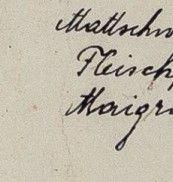 Mattschw
Fleisch
Maigr